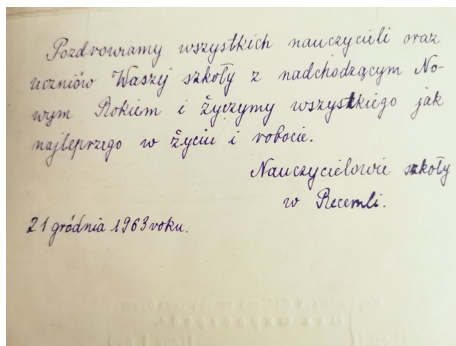 Pozdrowiamy wszystkich nauczycieli oraz
uczniów Waszej szkoły z nadchodzącym No-
wym Rokiem i życzymy wszystkiego jak
najleprzego w życiu i robocie.
Nauczycielowie szkoły
w
21 gródnia 1963 roku.